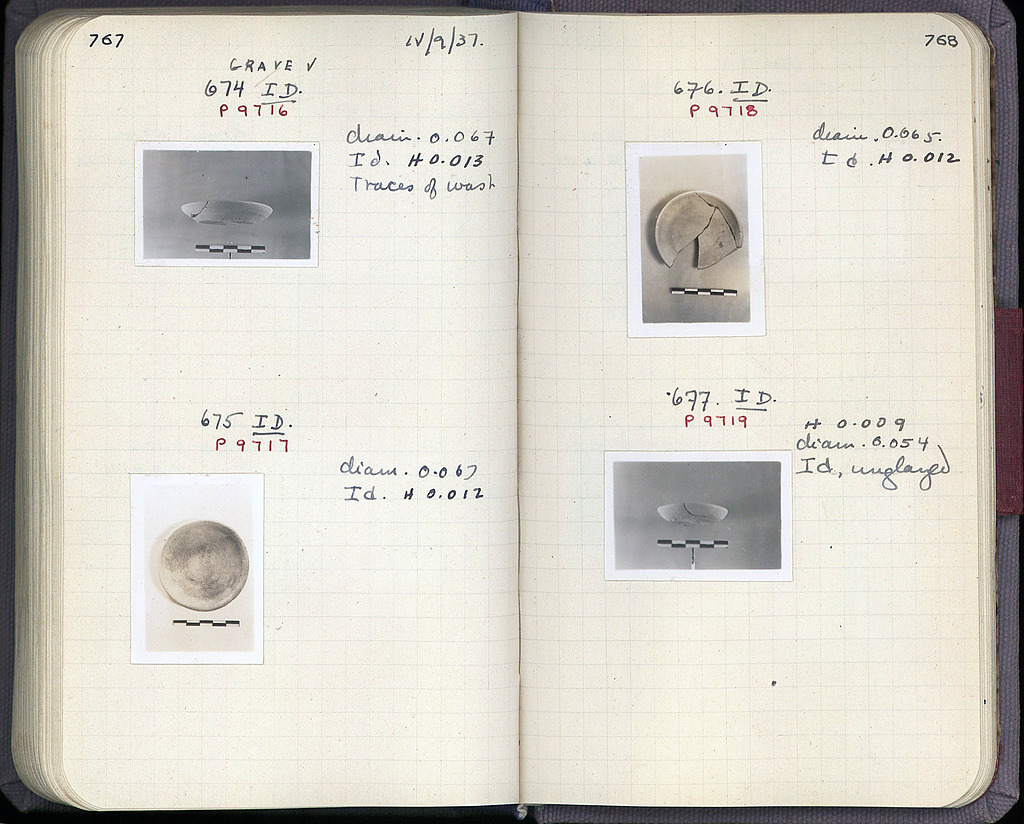 767
IV/9/37.
GRAVE V
674 ID.
P 9716
diam. 0.067
Id. H 0.013
Traces of wash
675 ID.
P 9717
diam. 0.067
Id. H 0.012
768
676. ID.
P 9718
diam. 0.065.
Id. H 0.012
677. ID.
P 9719
H 0.009
diam. 0.054
Id, unglazed